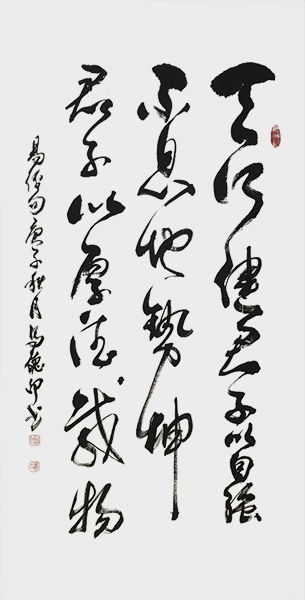 天行健君子以自強
不息地勢坤
君子以厚德載物
易傳句庚子秋月